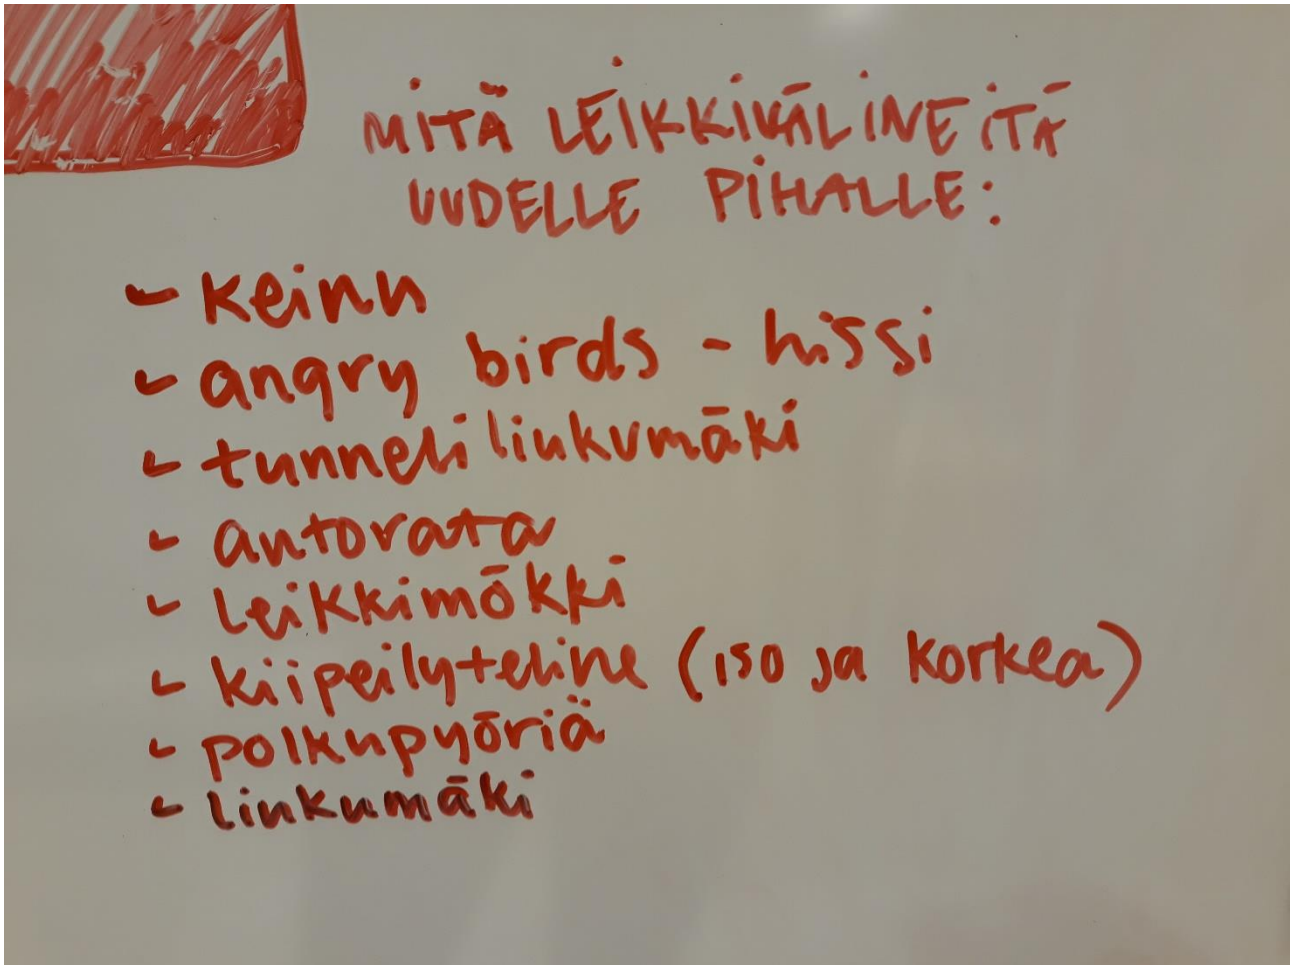 MITÄ LEIKKIVÄLINEITÄ
UUDELLE PIHALLE:
- keinu
- angry birds - hissi
- tunneliliukumäki
- autorata
- leikkimökki
- kiipeilyteline (iso ja korkea)
- polkupyöriä
- liukumäki